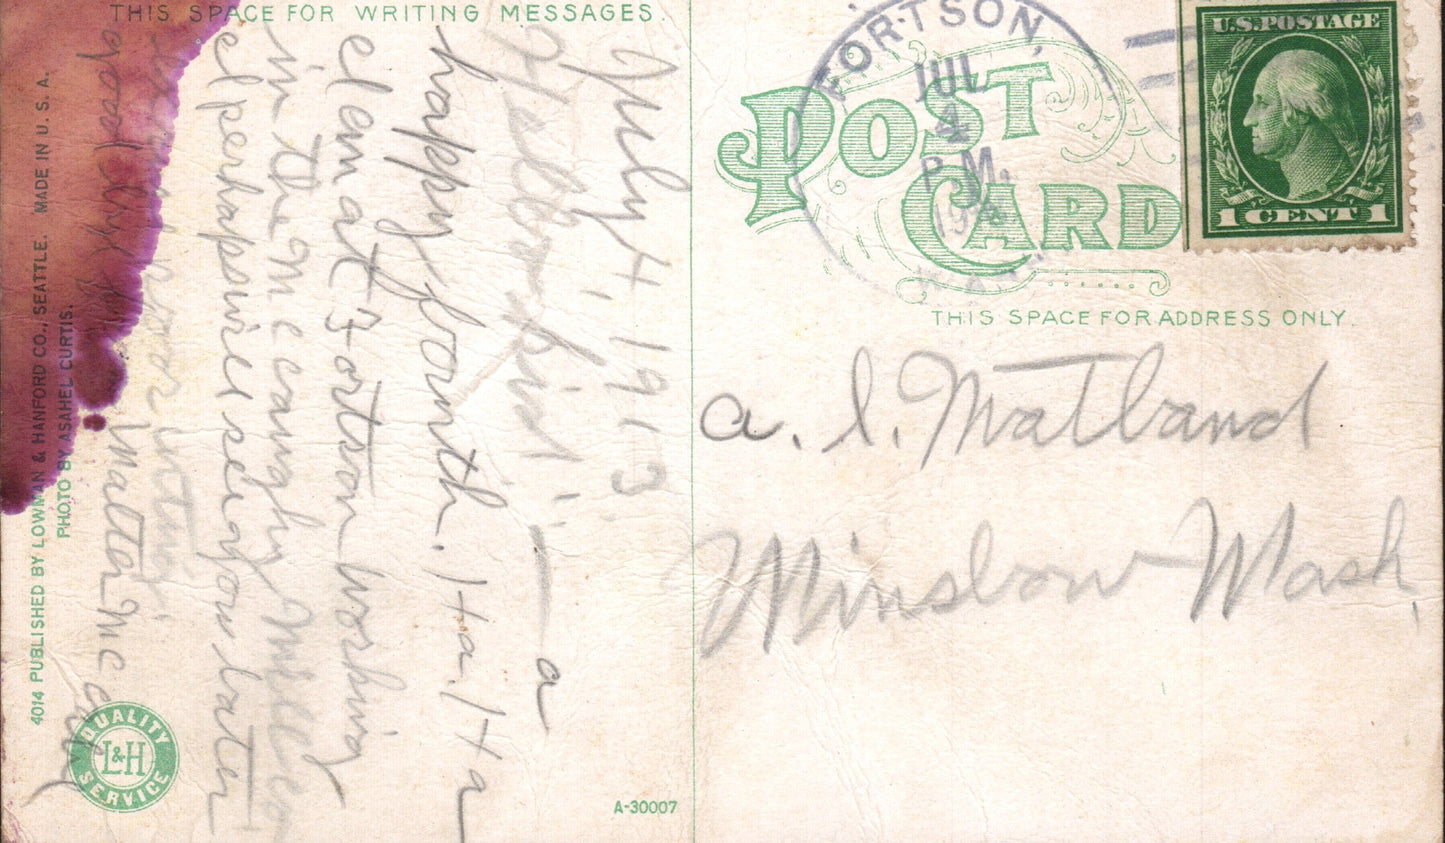 THIS SPACE FOR WRITING MESSAGES.
July 4, 1913
Hallow kid! — a
happy fourth. Ha. Ha
I am at Fortson working
in the McCaughy Mill
I perhaps will see you later
good
Walta Mc
4014 PUBLISHED BY LOWMAN & HANFORD CO., SEATTLE. MADE IN U. S. A.
PHOTO BY ASAHEL CURTIS.
QUALITY
L&H
SERVICE
A-30007
FORTSON,
JUL
4
P.M.
U.S. POSTAGE
1 CENT 1
POST
CARD
THIS SPACE FOR ADDRESS ONLY.
a. l. Matland
Winslow Wash,